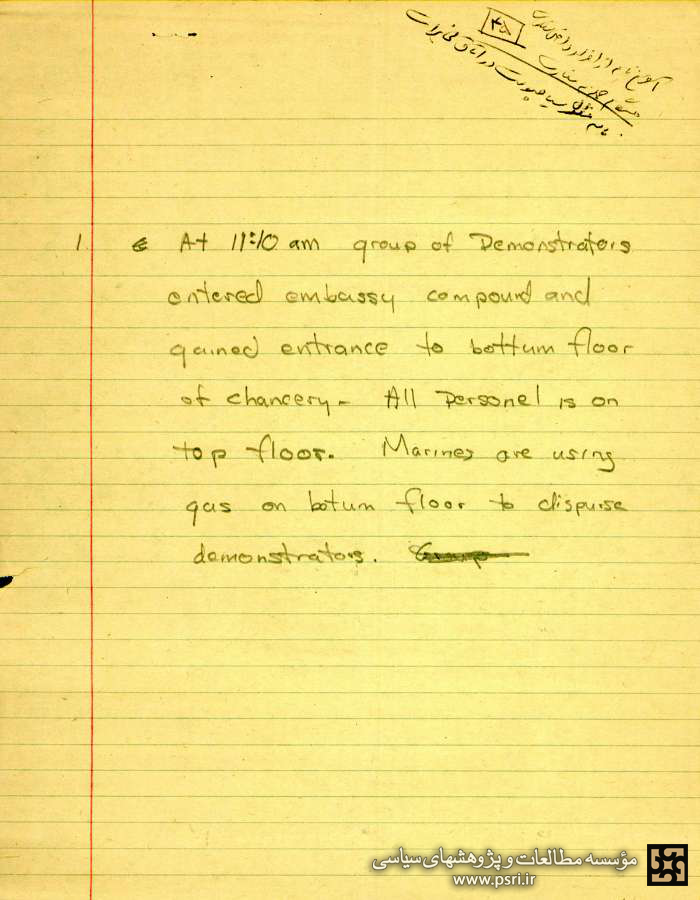 ۴۵
1. At 11:10 am group of Demonstrators
entered embassy compound and
gained entrance to bottum floor
of chancery - All Personel is on
top floor. Marines are using
gas on botum floor to dispurse
demonstrators.
مؤسسه مطالعات و پژوهشهای سیاسی
www.psri.ir